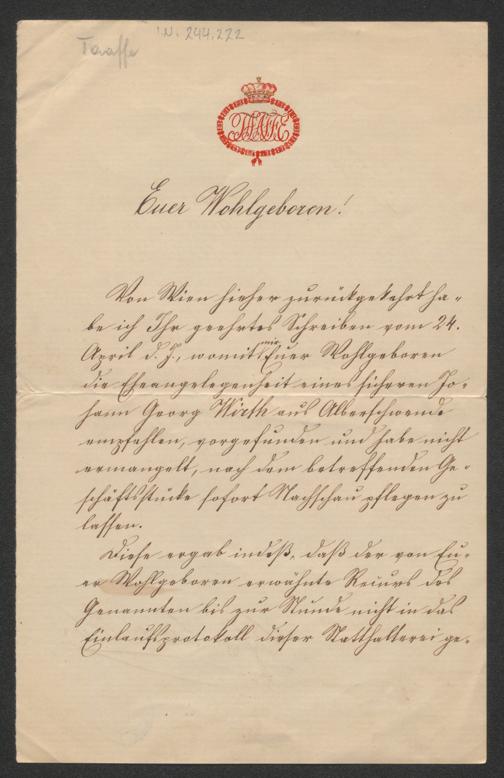 Taaffe
I.N. 244.272
TAAFFE
Euer Wohlgeboren!
Von Wien hieher zurückgekehrt ha-
be ich Ihr geehrtes Schreiben vom 24.
April d. J., womit mir Euer Wohlgeboren
die Eheangelegenheit eines sicheren Jo-
hann Georg Wirth aus Alberschwende
empfehlen, vorgefunden und habe nicht
ermangelt, nach dem betreffenden Ge-
schäftsstücke sofort Nachschau pflegen zu
lassen.
Diese ergab indeß, daß der von Eu-
er Wohlgeboren erwähnte Recurs des
Genannten bis zur Stunde nicht in das
Einlaufsprotokoll dieser Statthalterei ge-